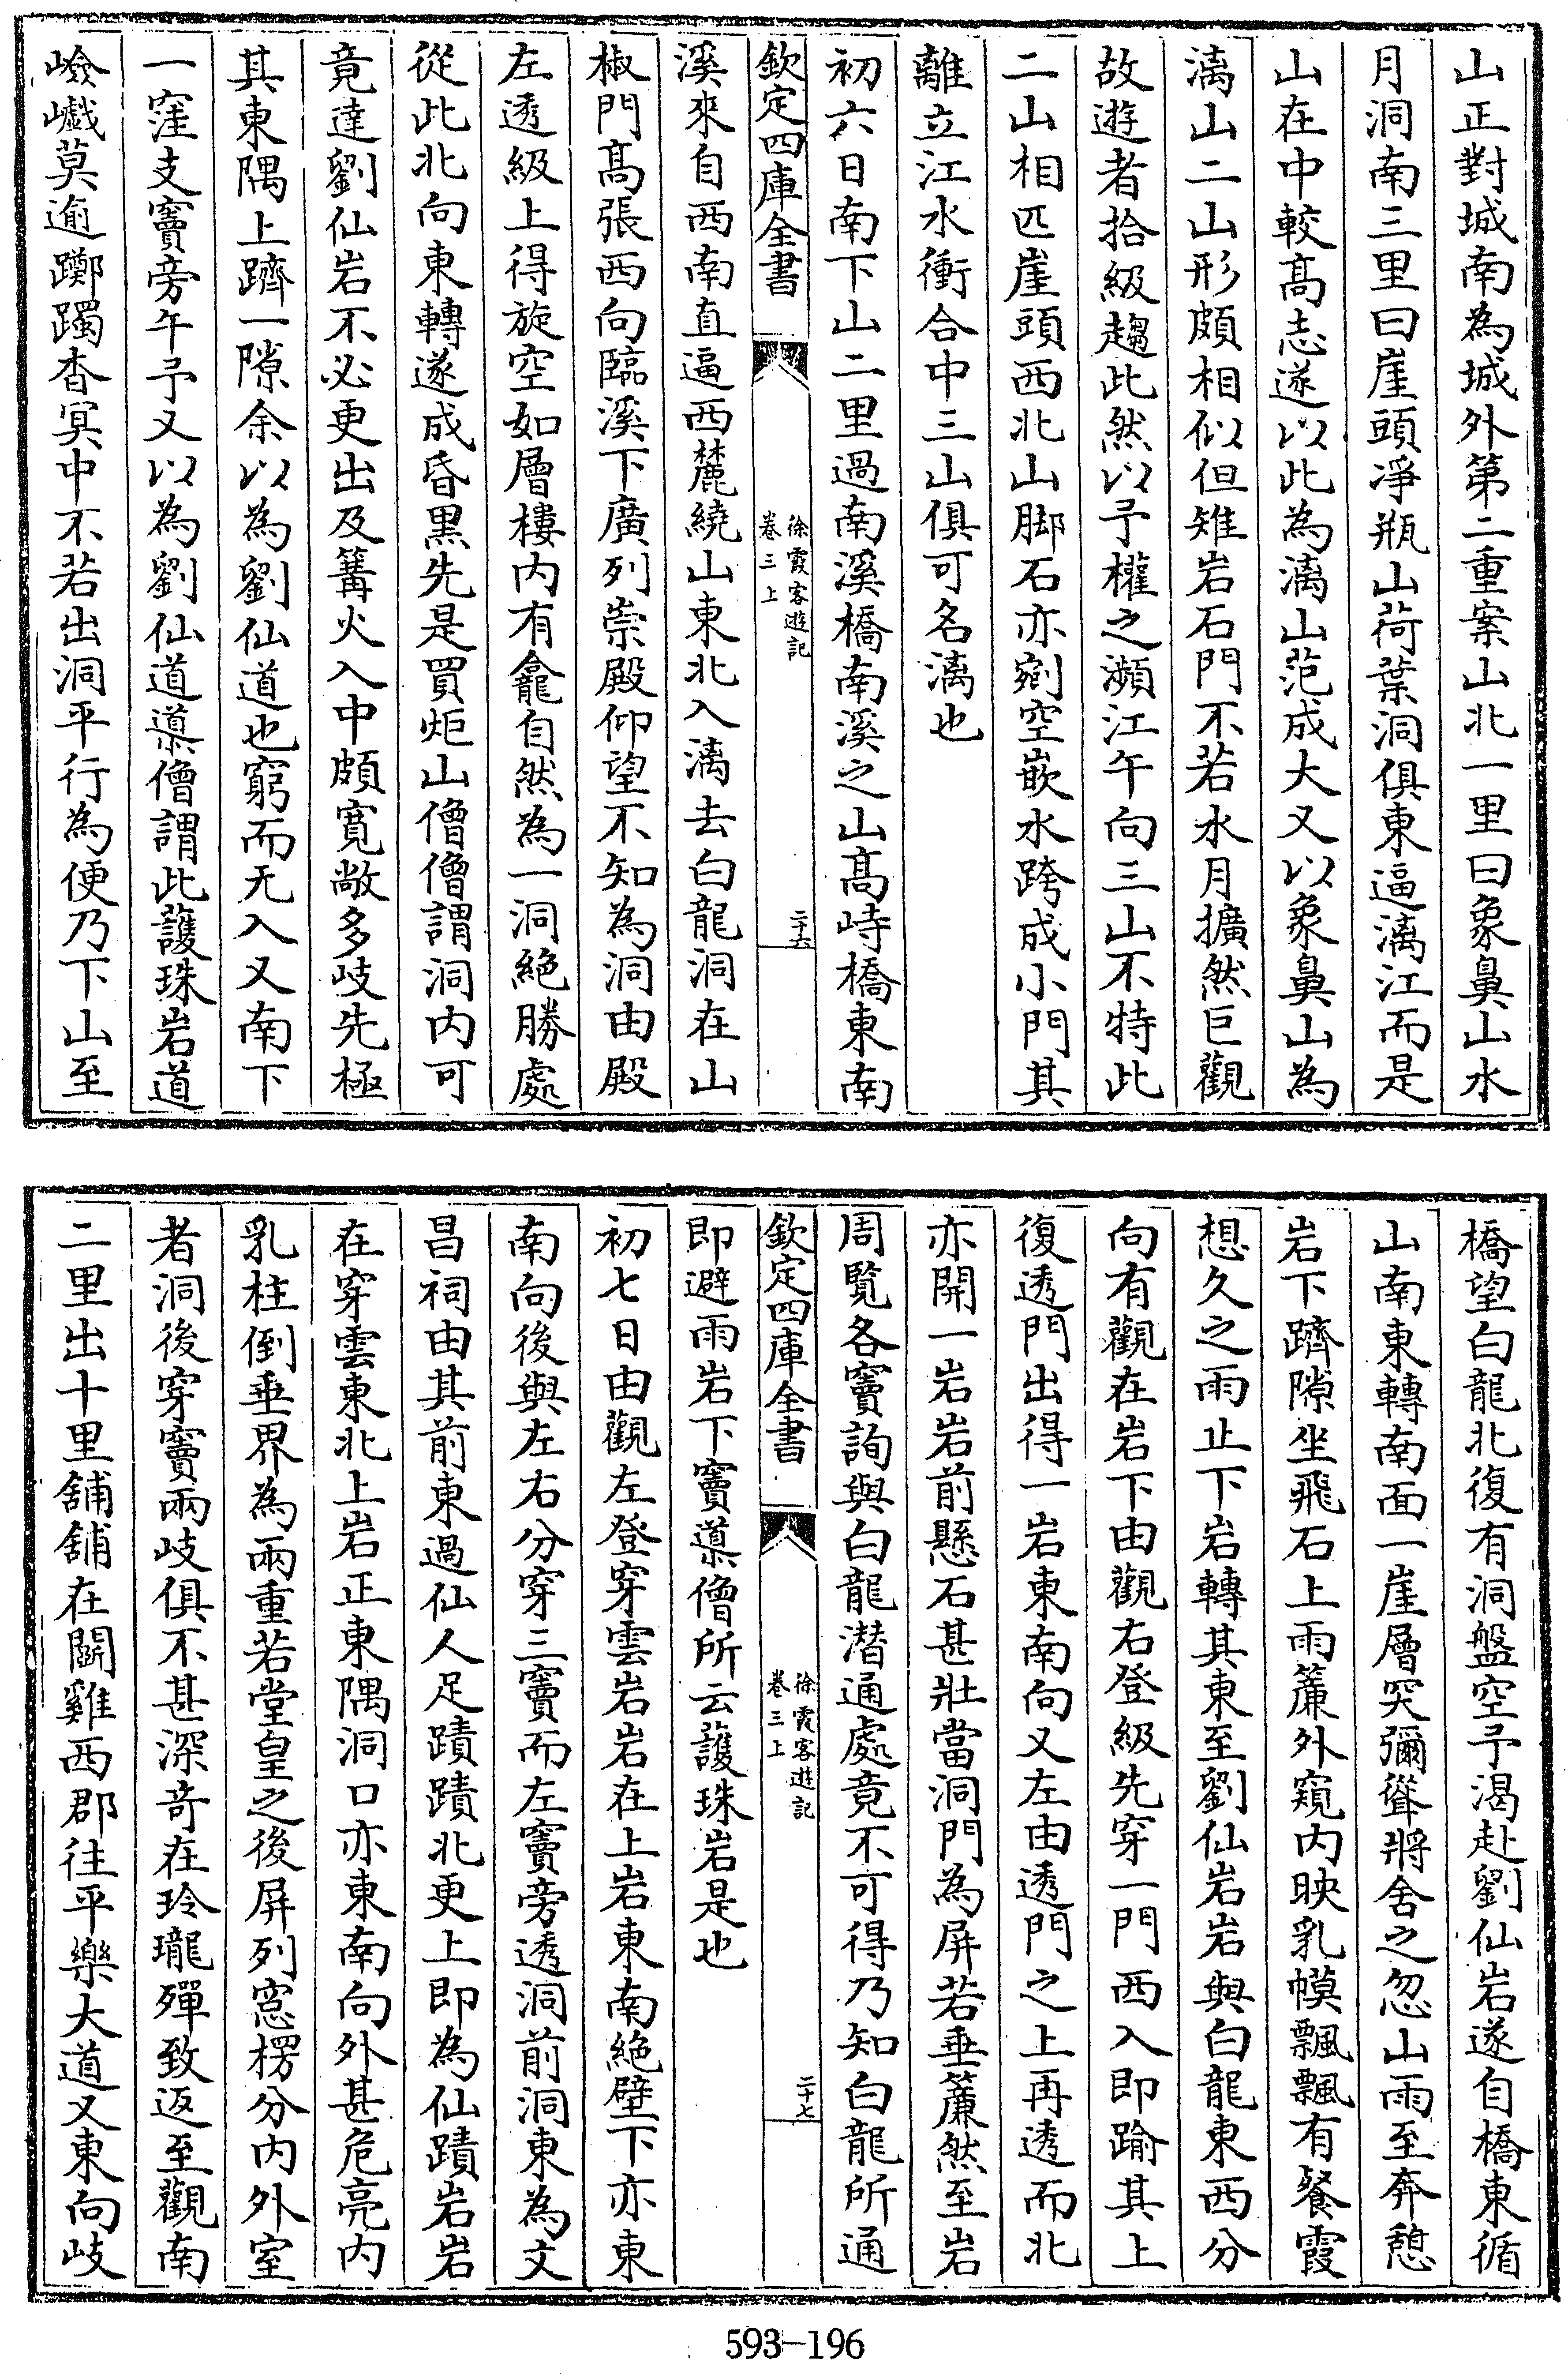 山正對城南為城外第二重案山北一里曰象鼻山水
月洞南三里曰崖頭淨瓶山荷葉洞俱東逼漓江而是
山在中較髙志遂以此為漓山范成大又以象鼻山為
漓山二山形頗相似但雉岩石門不若水月擴然巨觀
故遊者拾級趨此然以予權之瀕江午向三山不特此
二山相匹崖頭西北山脚石亦剜空嵌水跨成小門其
離立江水衝合中三山俱可名漓也
初六日南下山二里過南溪橋南溪之山髙峙橋東南
欽定四庫全書
徐霞客遊記
卷三上
二十六
溪來自西南直逼西麓繞山東北入漓去白龍洞在山
椒門髙張西向臨溪下廣列崇殿仰望不知為洞由殿
左透級上得旋空如層樓内有龕自然為一洞絶勝處
從此北向東轉遂成昏黒先是買炬山僧僧謂洞内可
竟達劉仙岩不必更出及篝火入中頗寛敞多岐先極
其東隅上躋一隙余以為劉仙道也窮而无入又南下
一窪支竇旁午予又以為劉仙道導僧謂此䕶珠岩道
嶮巇莫逾躑躅杳冥中不若出洞平行為便乃下山至
橋望白龍北復有洞盤空予渴赴劉仙岩遂自橋東循
山南東轉南面一崖層突彌聳將舍之忽山雨至奔憩
岩下躋隙坐飛石上雨簾外窺内映乳幙飄飄有餐霞
想久之雨止下岩轉其東至劉仙岩岩與白龍東西分
向有觀在岩下由觀右登級先穿一門西入即踰其上
復透門出得一岩東南向又左由透門之上再透而北
亦開一岩岩前懸石甚壯當洞門為屏若垂簾然至岩
周覧各竇詢與白龍潛通處竟不可得乃知白龍所通
欽定四庫全書
徐霞客遊記
卷三上
二十七
即避雨岩下竇導僧所云䕶珠岩是也
初七日由觀左登穿雲岩岩在上岩東南絶壁下亦東
南向後與左右分穿三竇而左竇旁透洞前洞東為文
昌祠由其前東過仙人足蹟蹟北更上即為仙蹟岩岩
在穿雲東北上岩正東隅洞口亦東南向外甚危亮内
乳柱倒垂界為兩重若堂皇之後屏列窓楞分内外室
者洞後穿竇兩岐俱不甚深竒在玲瓏殫致返至觀南
二里出十里舖舖在鬬雞西郡往平樂大道又東向岐